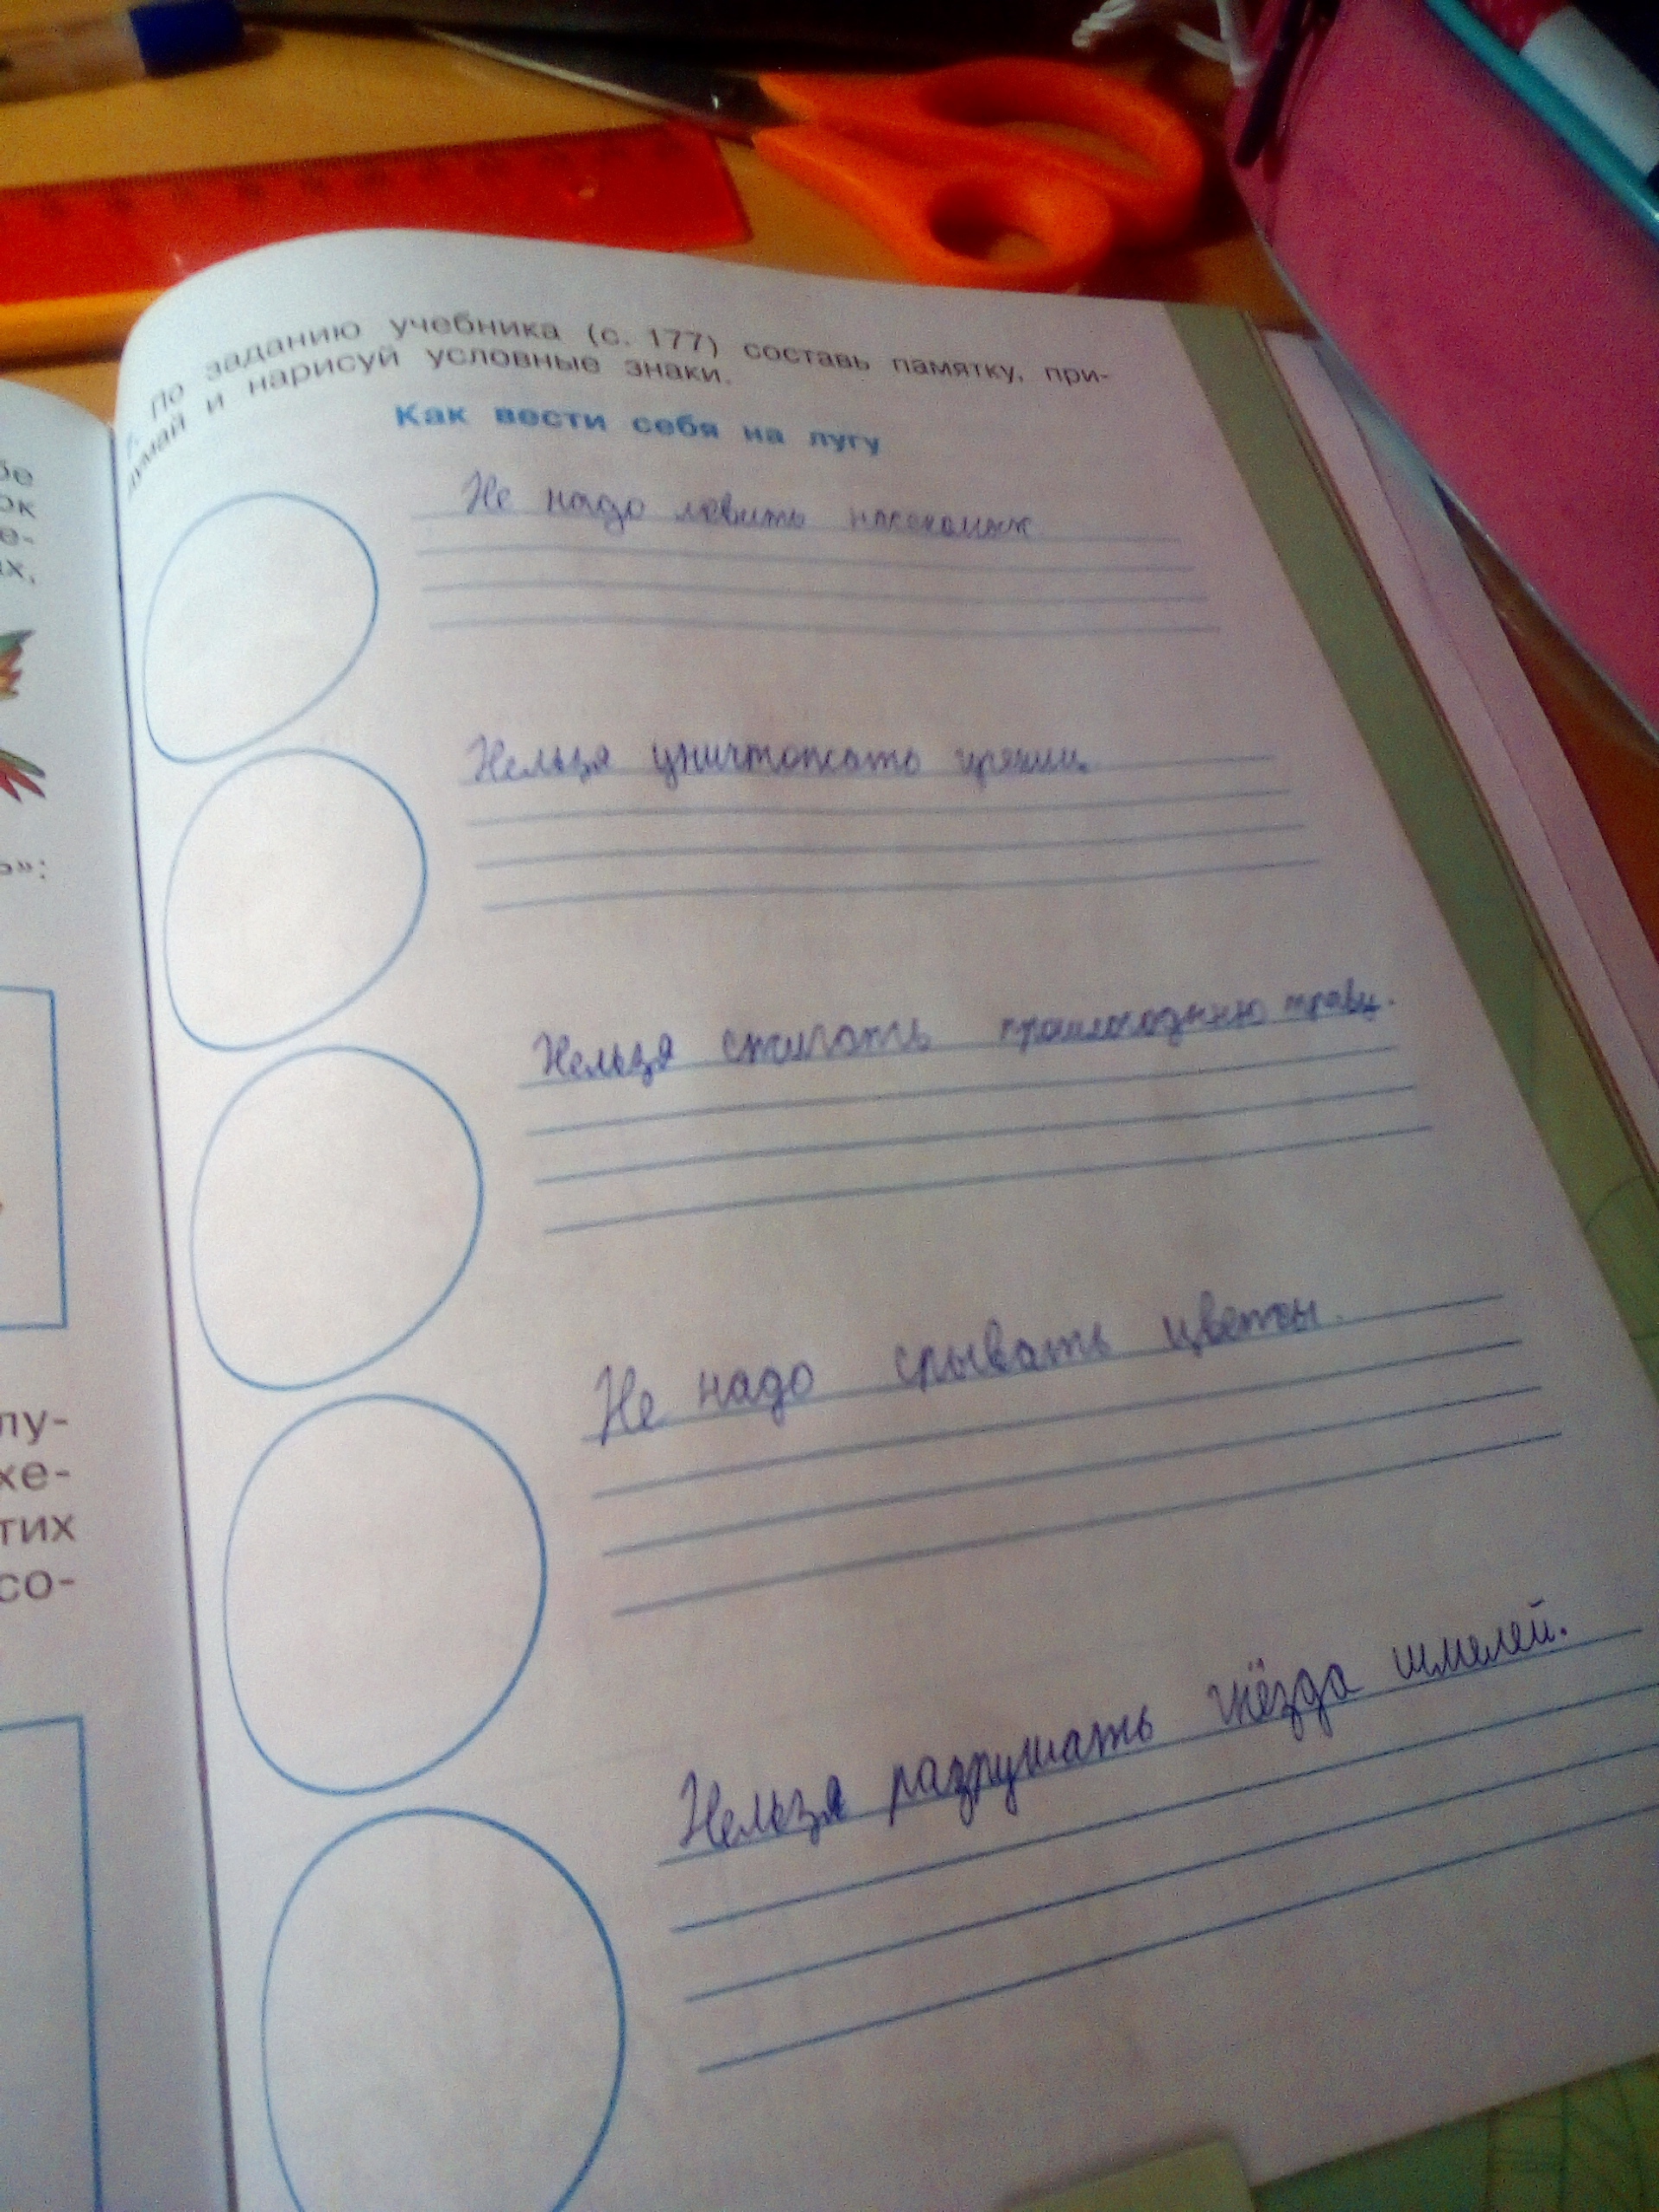 бе
ок
е-
х,
»:
лу-
же-
тих
со-
По заданию учебника (с. 177) составь памятку, при-
думай и нарисуй условные знаки.
Как вести себя на лугу
Не надо ловить насекомых
Нельзя уничтожать
Нельзя сжигать прошлогоднюю траву.
Не надо срывать цветы.
Нельзя разрушать гнёзда шмелей.